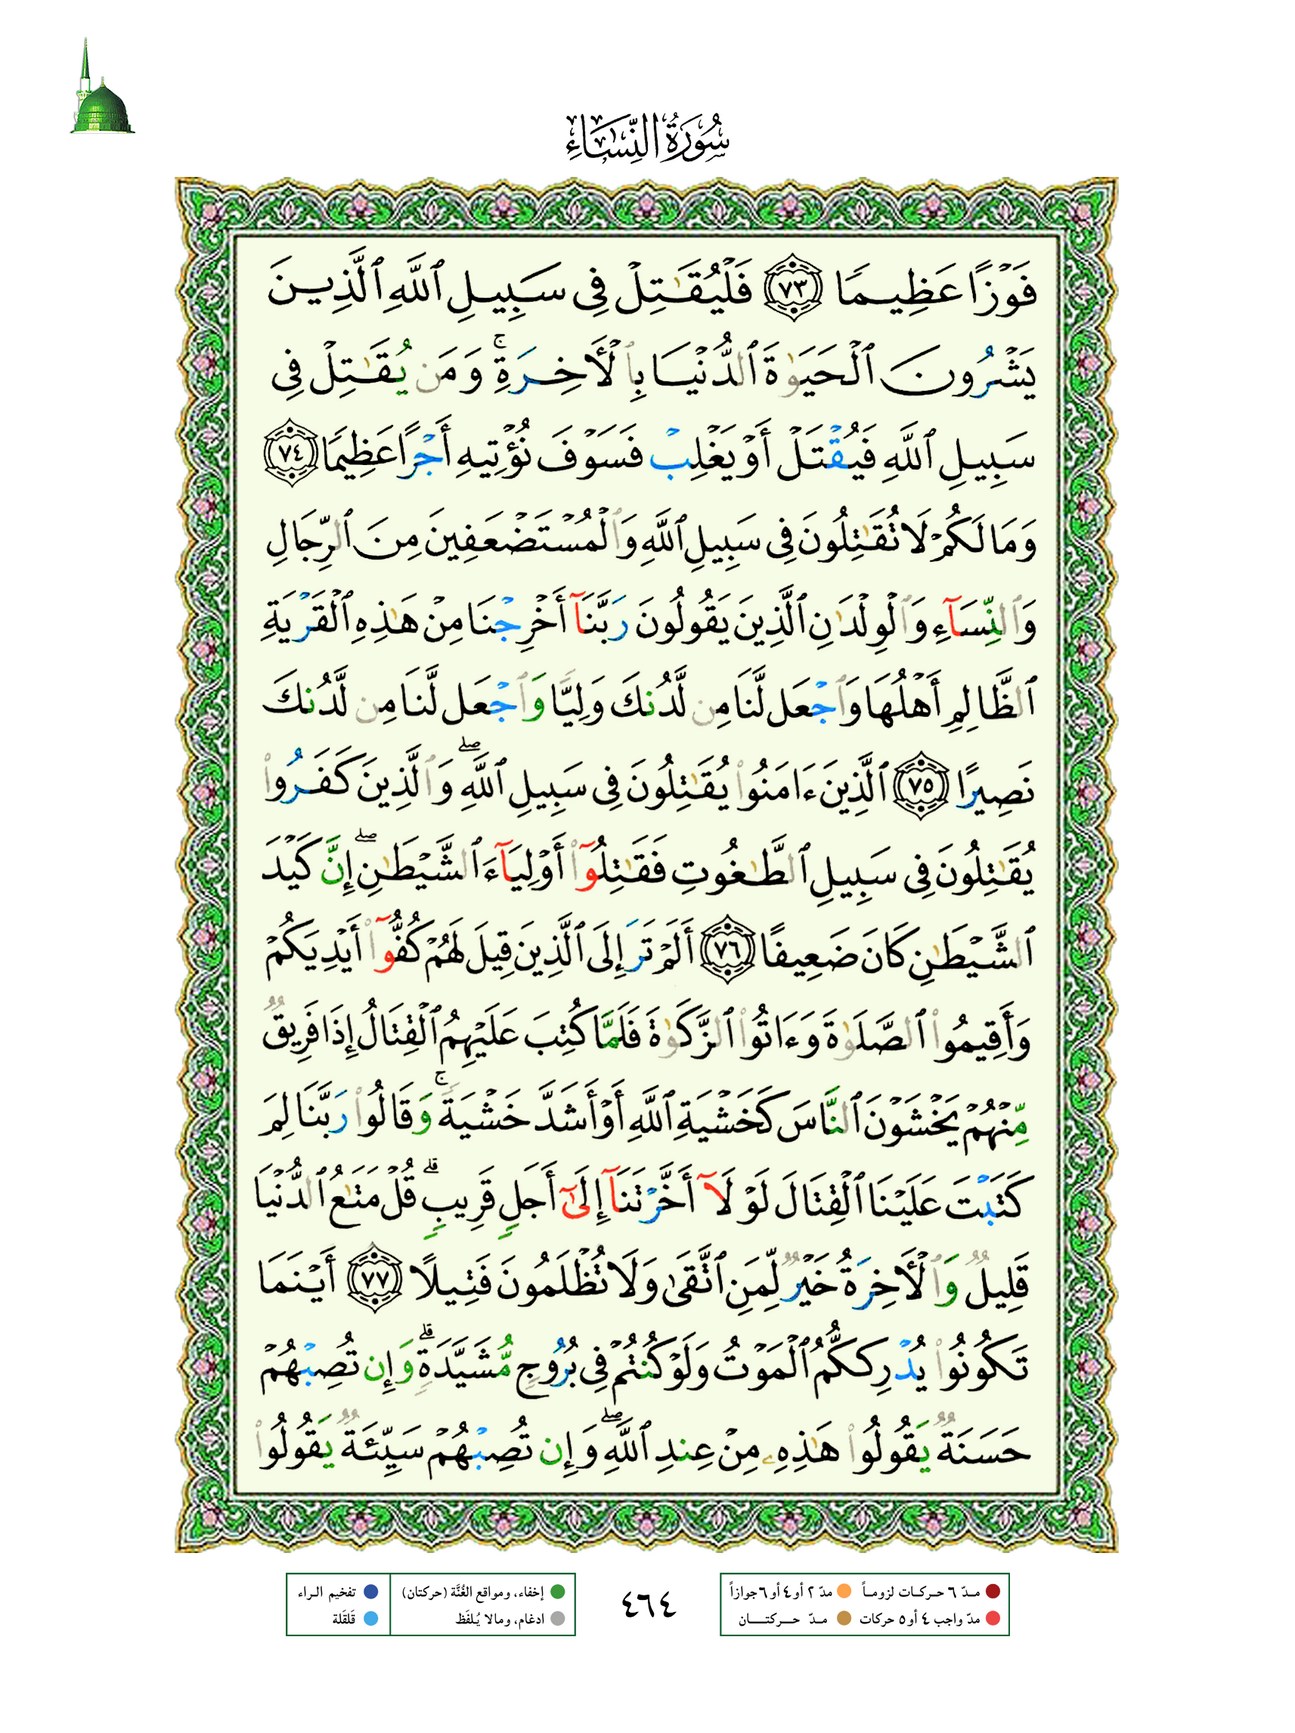 سُورَةُ النِّسَاءِ
فَوْزًا عَظِيمًا ٧٣ فَلْيُقَٰتِلْ فِى سَبِيلِ ٱللَّهِ ٱلَّذِينَ
يَشْرُونَ ٱلْحَيَوٰةَ ٱلدُّنْيَا بِٱلْأَخِرَةِ ۚ وَمَن يُقَٰتِلْ فِى
سَبِيلِ ٱللَّهِ فَيُقْتَلْ أَوْ يَغْلِبْ فَسَوْفَ نُؤْتِيهِ أَجْرًا عَظِيمًا ٧٤
وَمَا لَكُمْ لَا تُقَٰتِلُونَ فِى سَبِيلِ ٱللَّهِ وَٱلْمُسْتَضْعَفِينَ مِنَ ٱلرِّجَالِ
وَٱلنِّسَآءِ وَٱلْوِلْدَٰنِ ٱلَّذِينَ يَقُولُونَ رَبَّنَآ أَخْرِجْنَا مِنْ هَٰذِهِ ٱلْقَرْيَةِ
ٱلظَّالِمِ أَهْلُهَا وَٱجْعَل لَّنَا مِن لَّدُنكَ وَلِيًّا وَٱجْعَل لَّنَا مِن لَّدُنكَ
نَصِيرًا ٧٥ ٱلَّذِينَ ءَامَنُوا۟ يُقَٰتِلُونَ فِى سَبِيلِ ٱللَّهِ ۖ وَٱلَّذِينَ كَفَرُوا۟
يُقَٰتِلُونَ فِى سَبِيلِ ٱلطَّٰغُوتِ فَقَٰتِلُوٓا۟ أَوْلِيَآءَ ٱلشَّيْطَٰنِ ۖ إِنَّ كَيْدَ
ٱلشَّيْطَٰنِ كَانَ ضَعِيفًا ٧٦ أَلَمْ تَرَ إِلَى ٱلَّذِينَ قِيلَ لَهُمْ كُفُّوٓا۟ أَيْدِيَكُمْ
وَأَقِيمُوا۟ ٱلصَّلَوٰةَ وَءَاتُوا۟ ٱلزَّكَوٰةَ فَلَمَّا كُتِبَ عَلَيْهِمُ ٱلْقِتَالُ إِذَا فَرِيقٌ
مِّنْهُمْ يَخْشَوْنَ ٱلنَّاسَ كَخَشْيَةِ ٱللَّهِ أَوْ أَشَدَّ خَشْيَةً ۚ وَقَالُوا۟ رَبَّنَا لِمَ
كَتَبْتَ عَلَيْنَا ٱلْقِتَالَ لَوْلَآ أَخَّرْتَنَآ إِلَىٰٓ أَجَلٍ قَرِيبٍ ۗ قُلْ مَتَٰعُ ٱلدُّنْيَا
قَلِيلٌ وَٱلْأَخِرَةُ خَيْرٌ لِّمَنِ ٱتَّقَىٰ وَلَا تُظْلَمُونَ فَتِيلًا ٧٧ أَيْنَمَا
تَكُونُوا۟ يُدْرِككُّمُ ٱلْمَوْتُ وَلَوْ كُنتُمْ فِى بُرُوجٍ مُّشَيَّدَةٍ ۗ وَإِن تُصِبْهُمْ
حَسَنَةٌ يَقُولُوا۟ هَٰذِهِۦ مِنْ عِندِ ٱللَّهِ ۖ وَإِن تُصِبْهُمْ سَيِّئَةٌ يَقُولُوا۟
مـدّ ٦ حركـات لزومـاً
مدّ ٢ أو٤ أو ٦ جوازاً
مدّ واجب ٤ أو ٥ حركات
مـدّ حـركتـان
٤٦٤
إخفاء، ومواقع الغُنَّة (حركتان)
تفخيم الـراء
ادغام، ومالا يُـلفَظ
قَلقَلة